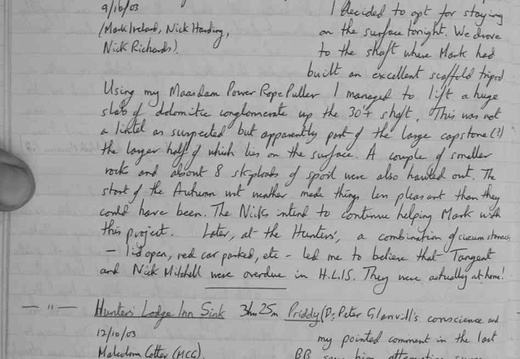 9/10/03
(Mark Ireland, Nick Harding,
Nick Richards).
I decided to opt for staying
on the surface tonight. We drove
to the shaft where Mark had
built an excellent scaffold tripod
Using my Maasdam Power Rope Puller I managed to lift a huge
slab of dolomitic conglomerate up the 30ft shaft. This was not
a lintel as suspected but apparently part of the large capstone (?)
the larger half of which lies on the surface. A couple of smaller
rocks and about 8 skiploads of spoil were also hauled out. The
start of the Autumn wet weather made things less pleasant than they
could have been. The Nicks intend to continue helping Mark with
this project. Later, at the Hunters', a combination of circumstances
- lid open, red car parked, etc - led me to believe that Tangent
and Nick Mitchell were overdue in H.L.I.S. They were actually at home!
— " — Hunters' Lodge Inn Sink 3hr 25m Priddy (D: Peter Glanvill's conscience and
12/10/03
my pointed comment in the last
Malcolm Cotter (MCG).
BB